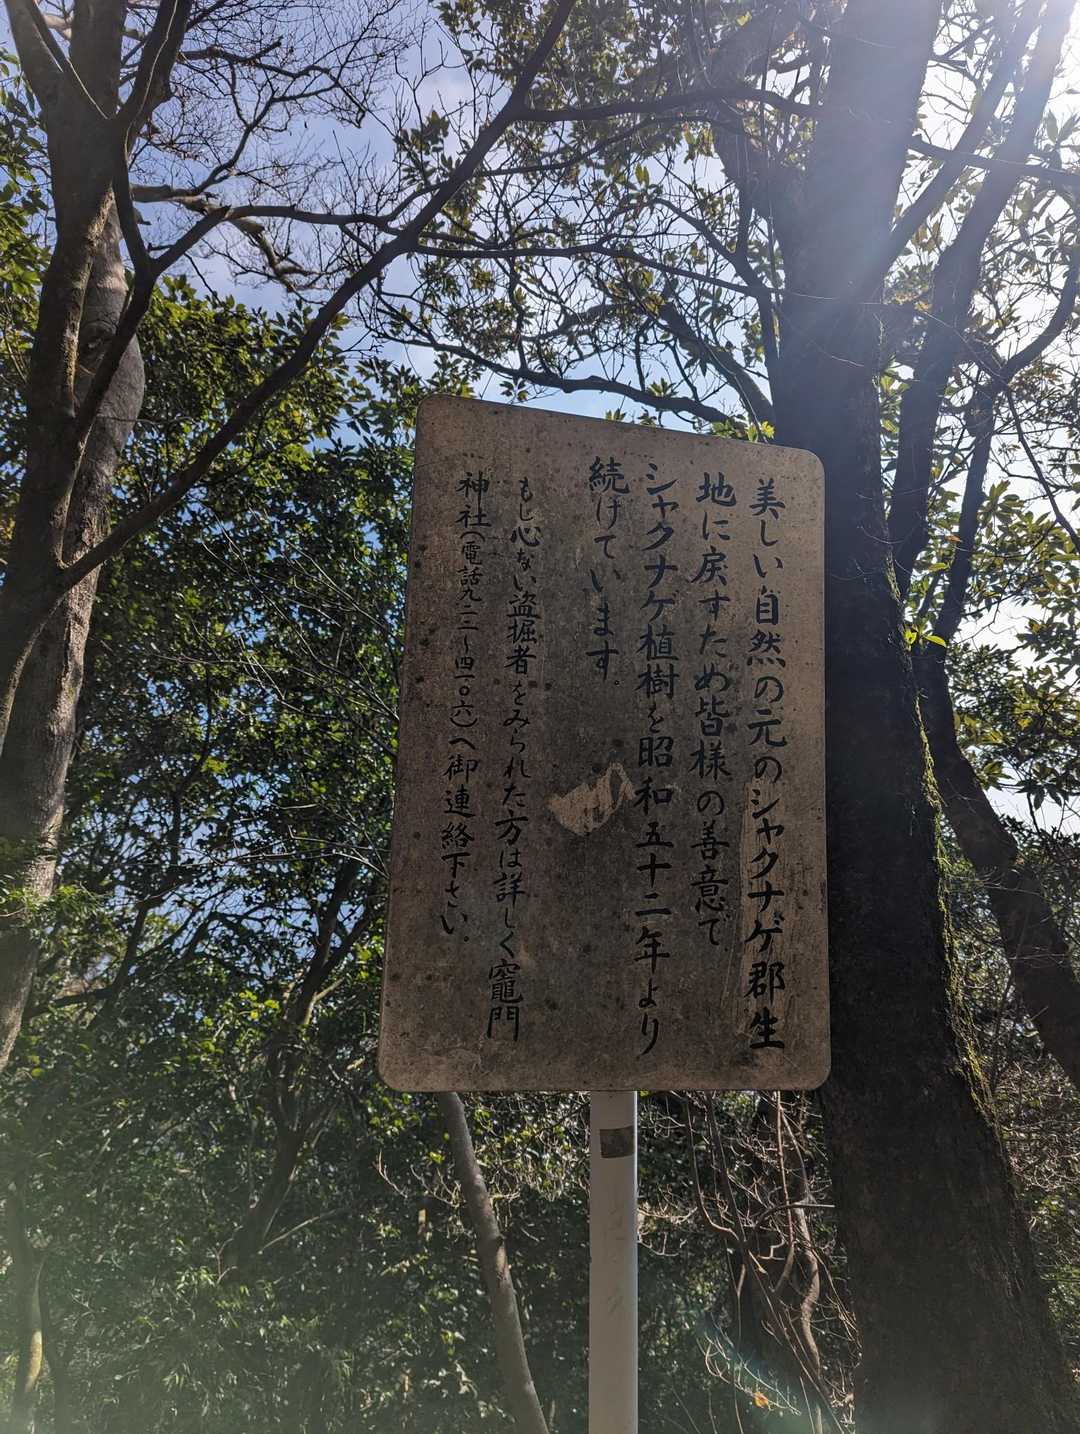 美しい自然の元のシャクナゲ郡生
地に戻すため皆様の善意で
シャクナゲ植樹を昭和五十二年より
続けています。
もし心ない盗掘者をみられた方は詳しく竈門
神社(電話九二二〜四一〇六)へ御連絡下さい。